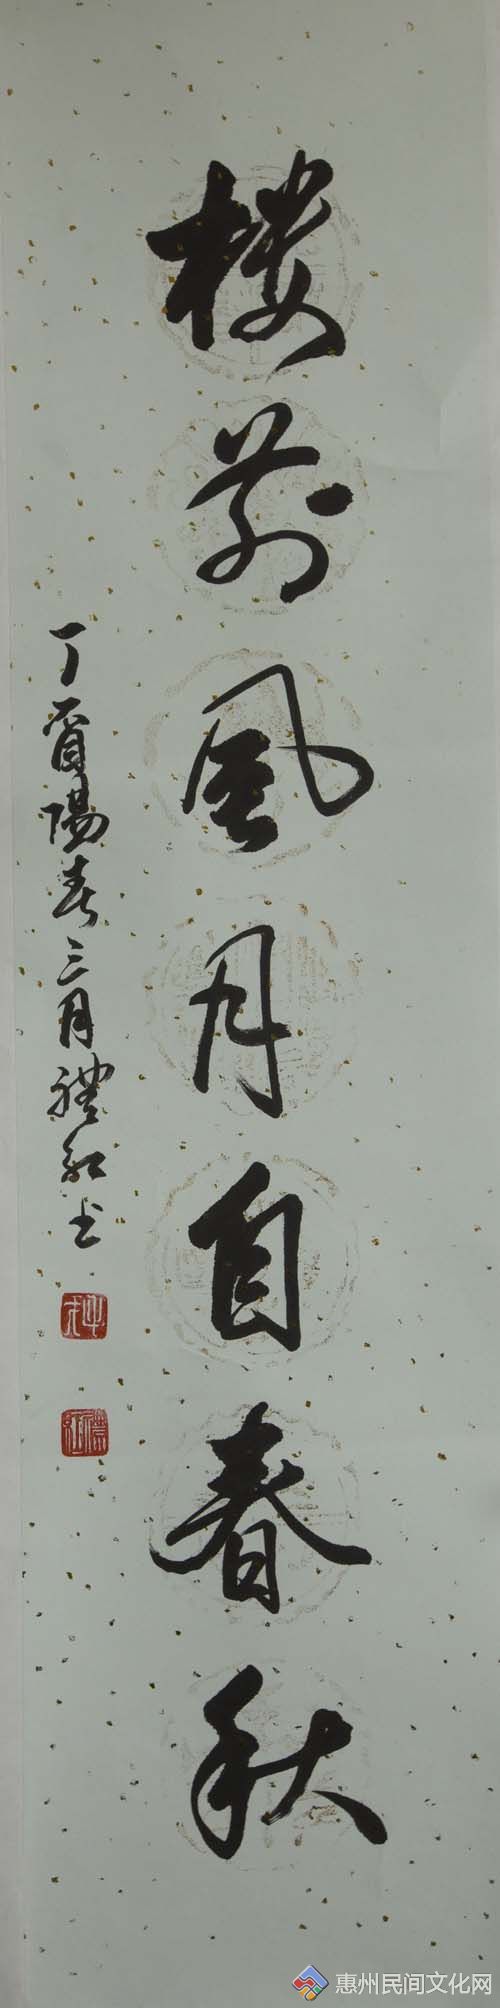 楼前風月自春秋
丁酉陽春三月禮和书
惠州民间文化网